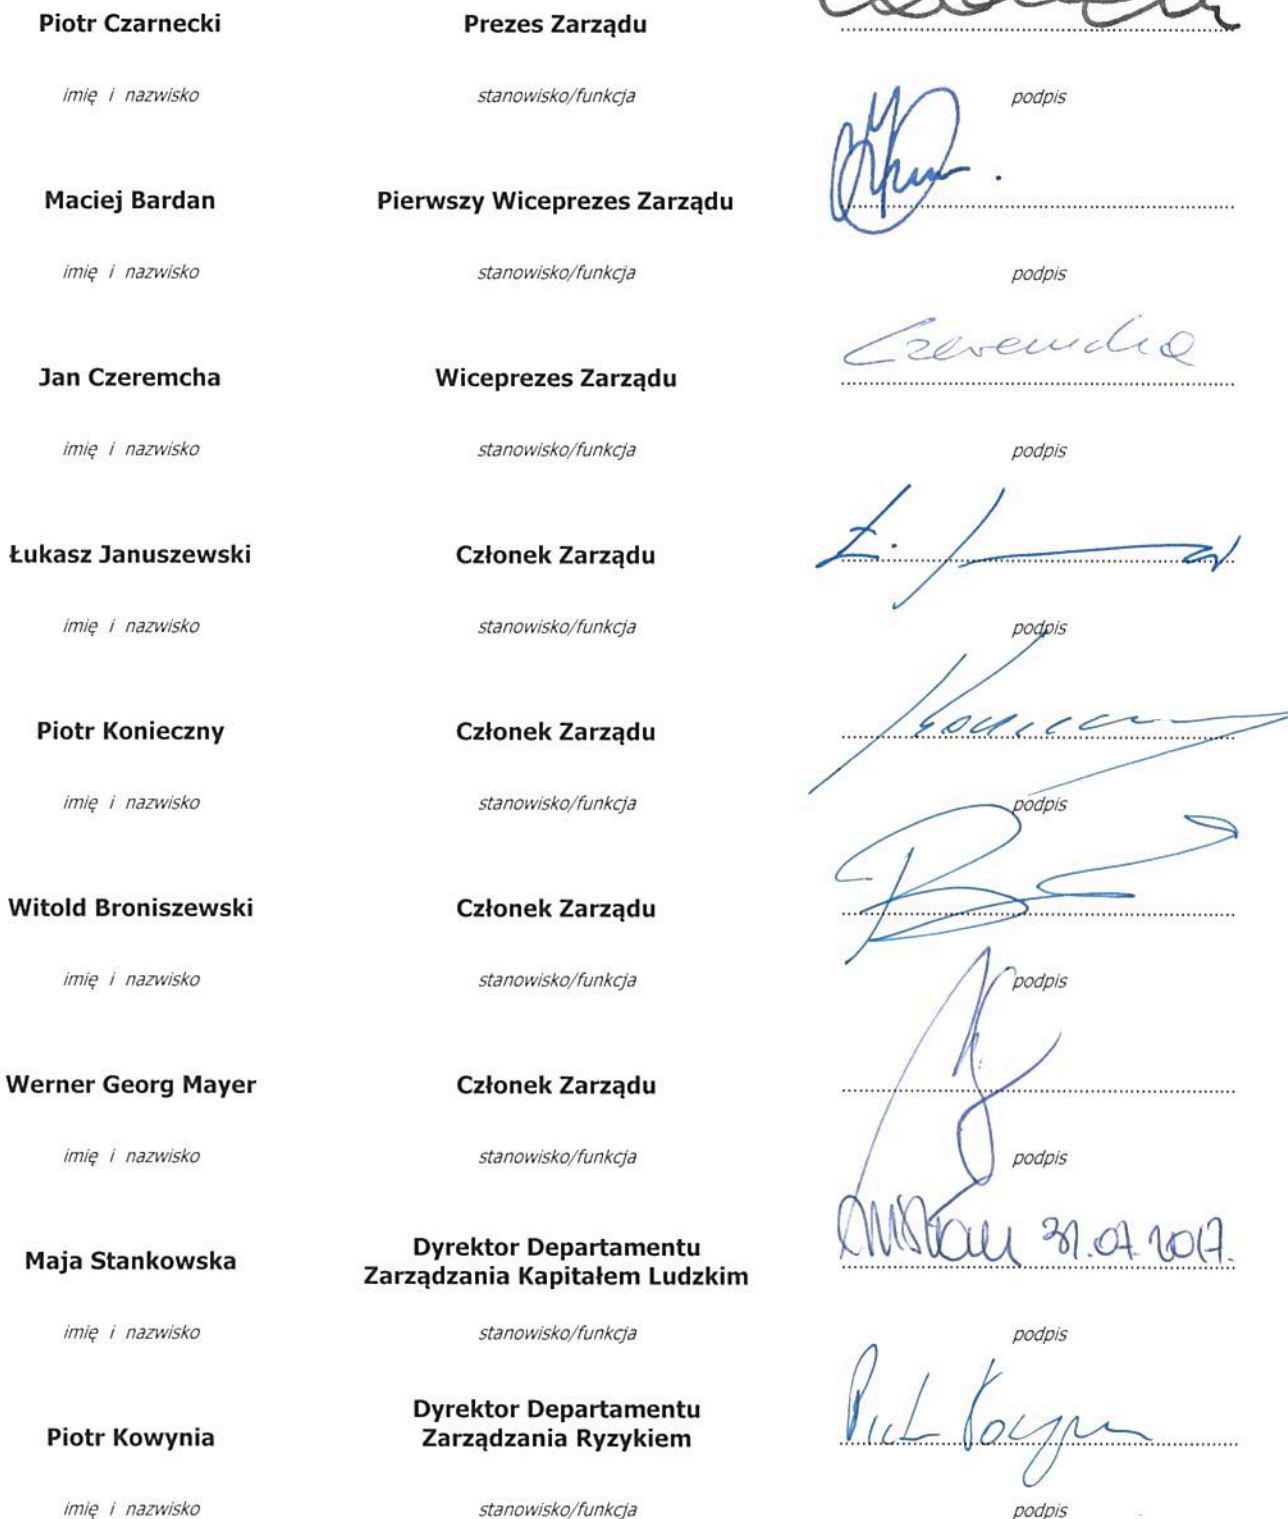 Piotr Czarnecki Prezes Zarządu
imię i nazwisko stanowisko/funkcja podpis
Maciej Bardan Pierwszy Wiceprezes Zarządu
imię i nazwisko stanowisko/funkcja podpis
Jan Czeremcha Wiceprezes Zarządu Czeremcha
imię i nazwisko stanowisko/funkcja podpis
Łukasz Januszewski Członek Zarządu
imię i nazwisko stanowisko/funkcja podpis
Piotr Konieczny Członek Zarządu
imię i nazwisko stanowisko/funkcja podpis
Witold Broniszewski Członek Zarządu
imię i nazwisko stanowisko/funkcja podpis
Werner Georg Mayer Członek Zarządu
imię i nazwisko stanowisko/funkcja podpis
Maja Stankowska Dyrektor Departamentu
Zarządzania Kapitałem Ludzkim 31.07.2017.
imię i nazwisko stanowisko/funkcja podpis
Piotr Kowynia Dyrektor Departamentu
Zarządzania Ryzykiem
imię i nazwisko stanowisko/funkcja podpis